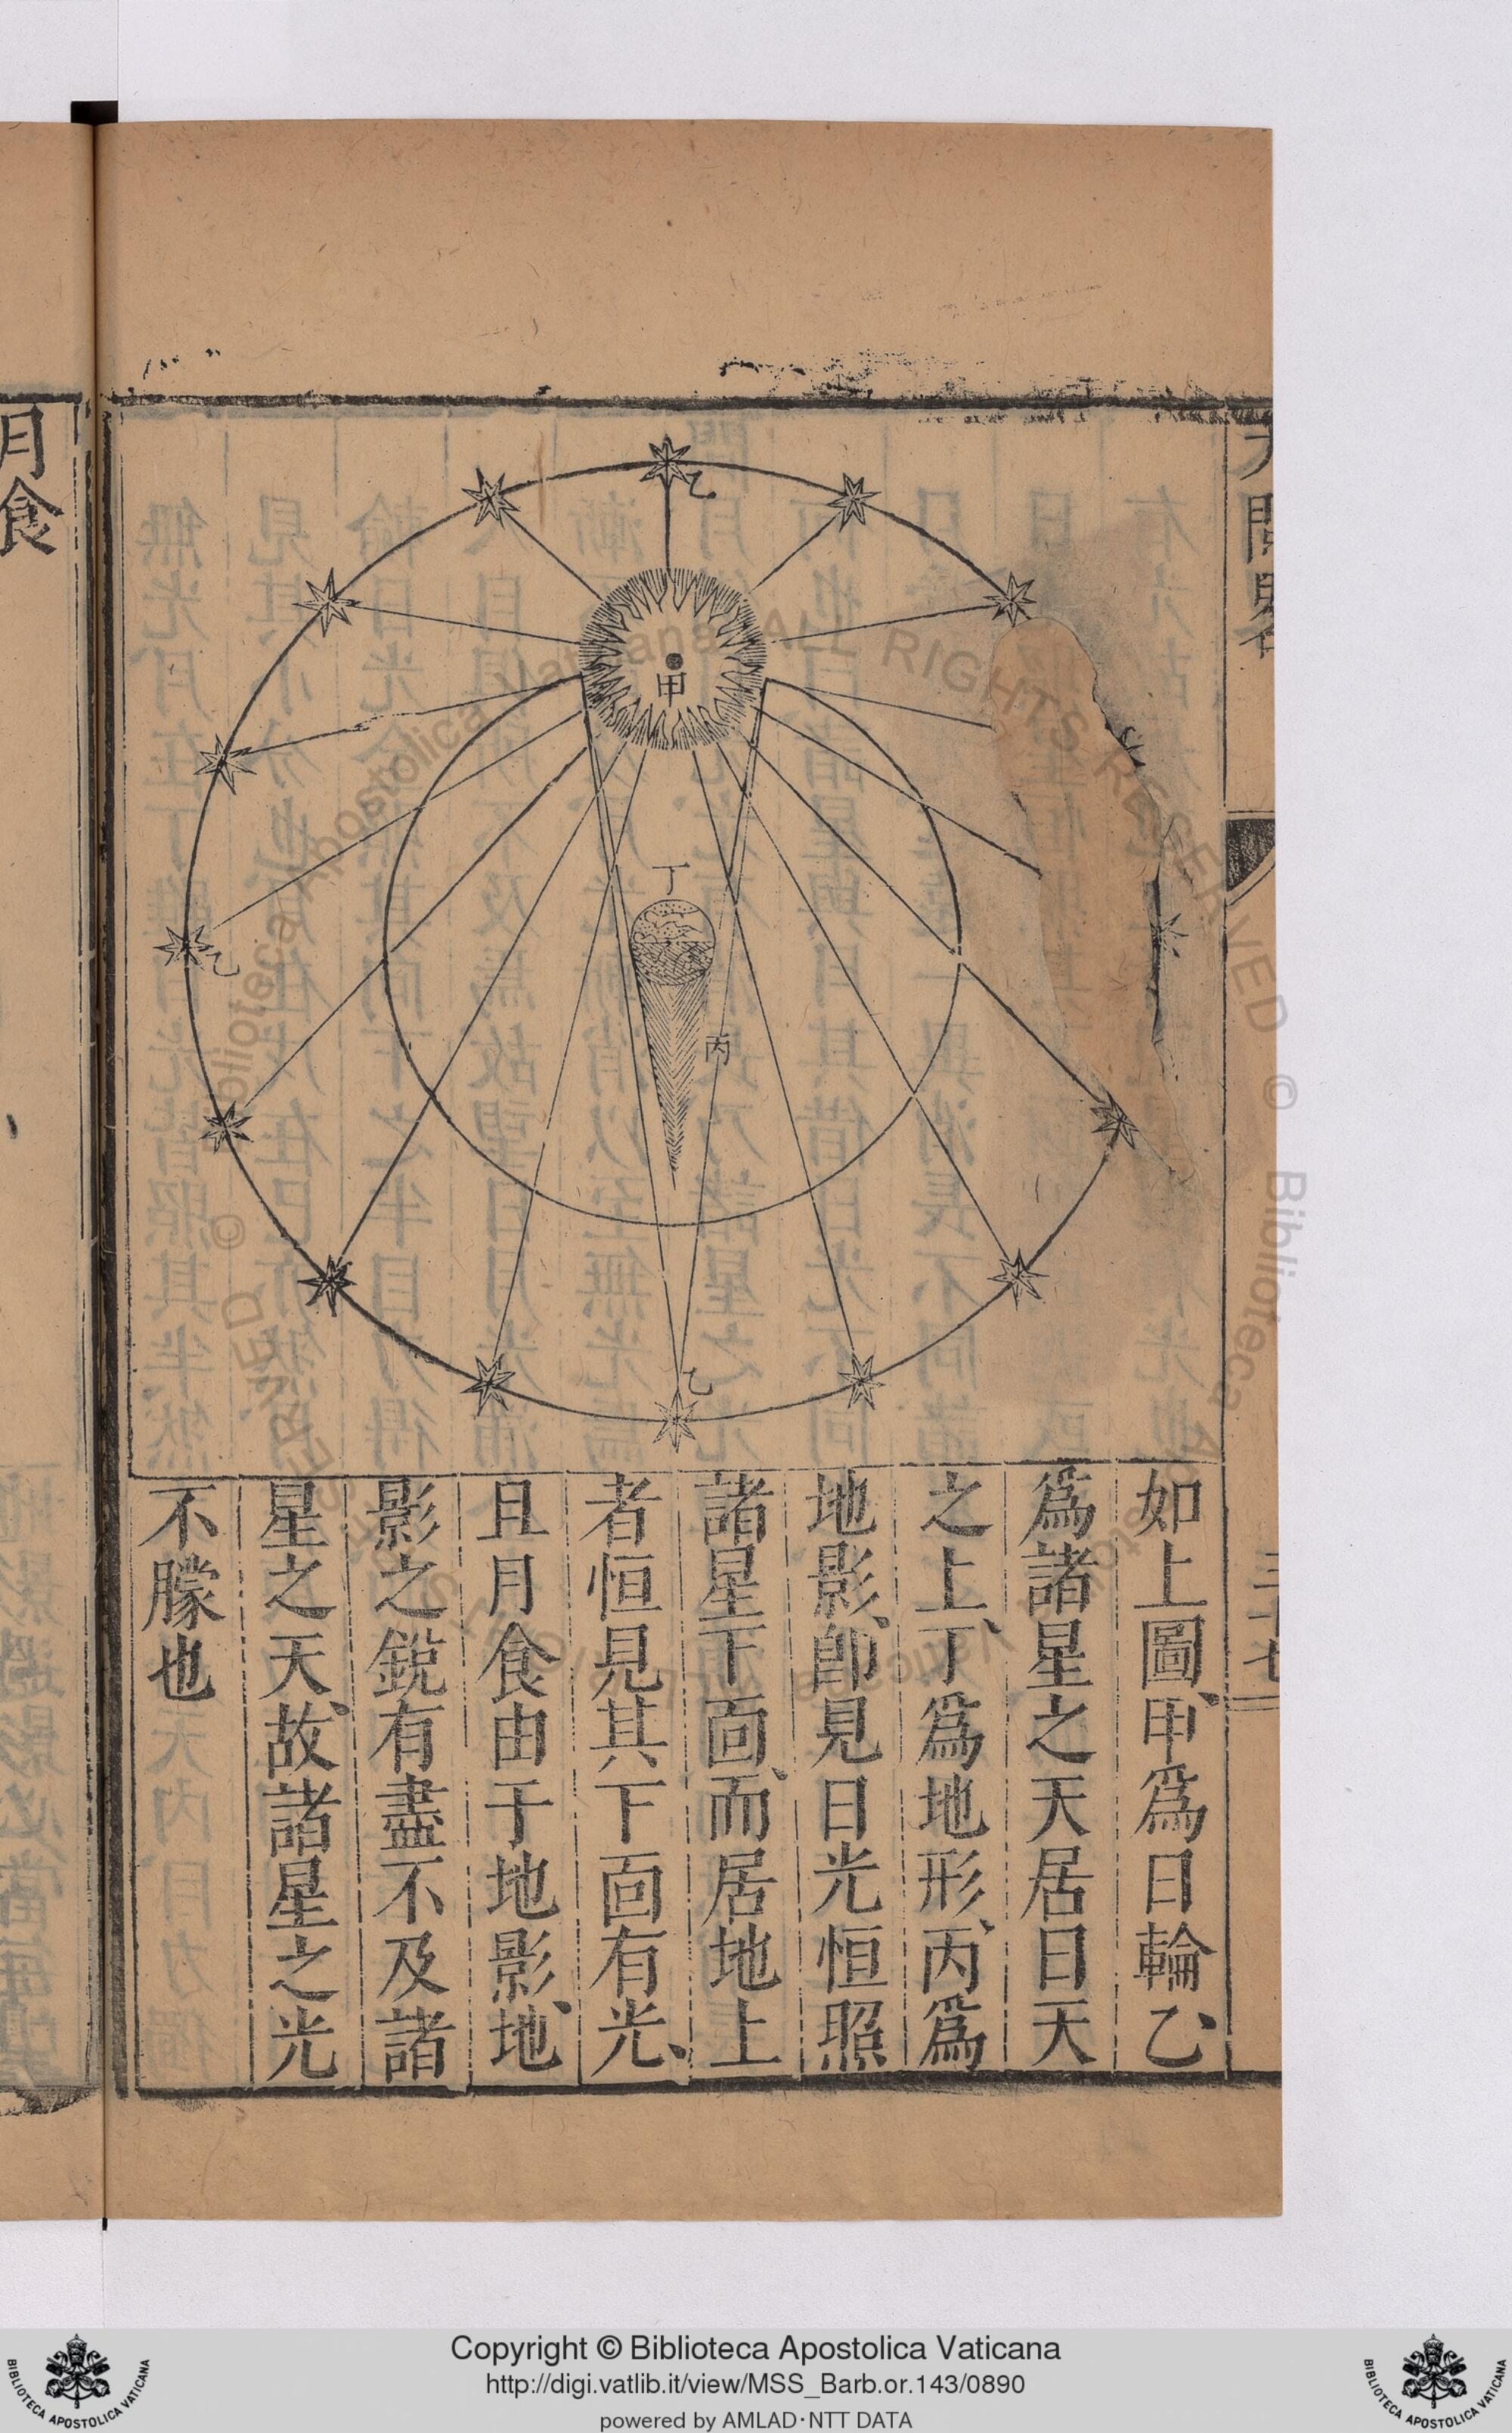 如上圖、甲爲日輪、乙、
爲諸星之天居日天
之上、丁爲地形、丙爲
地影、卽見日光恒照
諸星下面、而居地上
者恒見其下面有光、
且月食由于地影、地
影之銳有盡不及諸
星之天、故諸星之光
不朦也
乙
甲
丁
丙
乙
乙
月食
Copyright © Biblioteca Apostolica Vaticana
http://digi.vatlib.it/view/MSS_Barb.or.143/0890
powered by AMLAD·NTT DATA
BIBLIOTECA APOSTOLICA VATICANA
BIBLIOTECA APOSTOLICA VATICANA